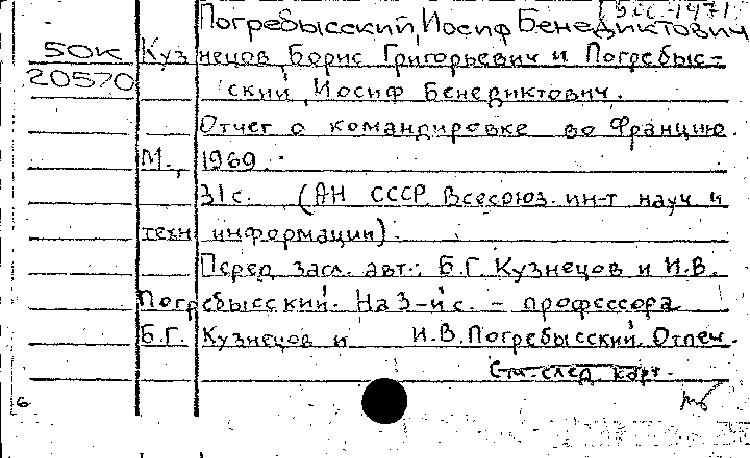 Погребысский, Иосиф Бенедиктович
50К Кузнецов Борис Григорьевич и Погребыс-
20570 ский, Иосиф Бенедиктович.
Отчет о командировке во Францию.
М., 1969.
31с. (АН СССР. Всесоюз. ин-т науч и
техн информации).
Перед загл. авт.: Б.Г. Кузнецов и И.Б.
Погребысский. На 3-й с. - профессора
Б.Г. Кузнецов и И.Б. Погребысский. Отпеч.
См. след. карт.
6